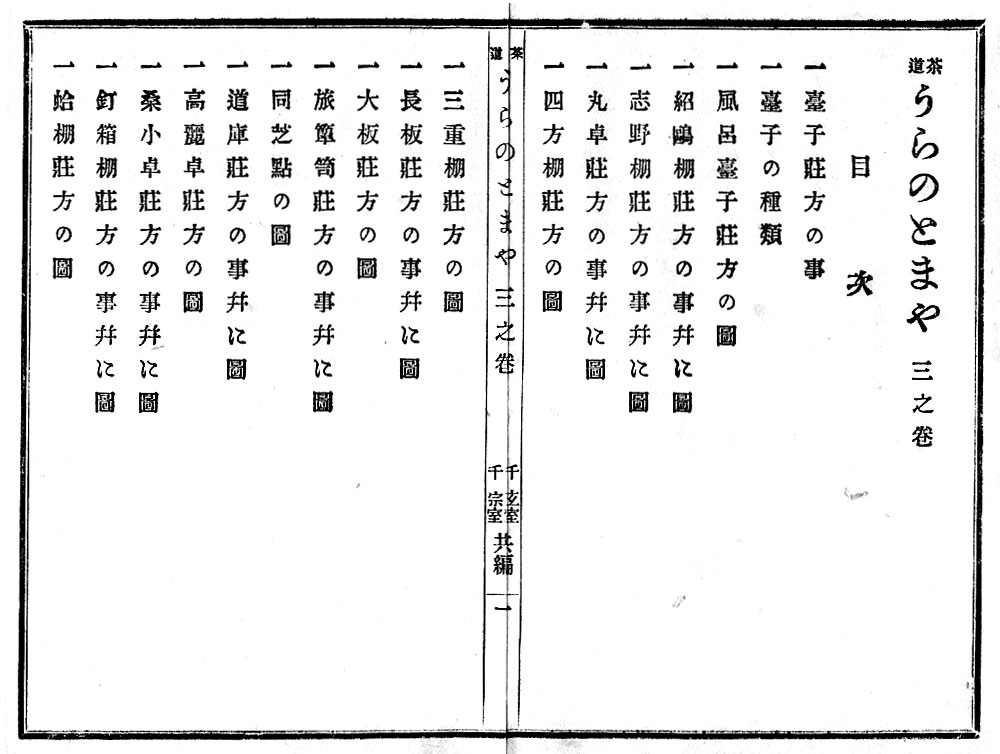 茶道うらのとまや 三之卷
目次
一臺子莊方の事
一臺子の種類
一風呂臺子莊方の圖
一紹鷗棚莊方の事幷に圖
一志野棚莊方の事幷に圖
一丸卓莊方の事幷に圖
一四方棚莊方の圖
茶道うらのとまや 三之卷
千玄室
千宗室
共編
一
一三重棚莊方の圖
一長板莊方の事幷に圖
一大板莊方の圖
一旅簞笥莊方の事幷に圖
一同芝點の圖
一道庫莊方の事幷に圖
一高麗卓莊方の圖
一桑小卓莊方の事幷に圖
一釘箱棚莊方の事幷に圖
一蛤棚莊方の圖